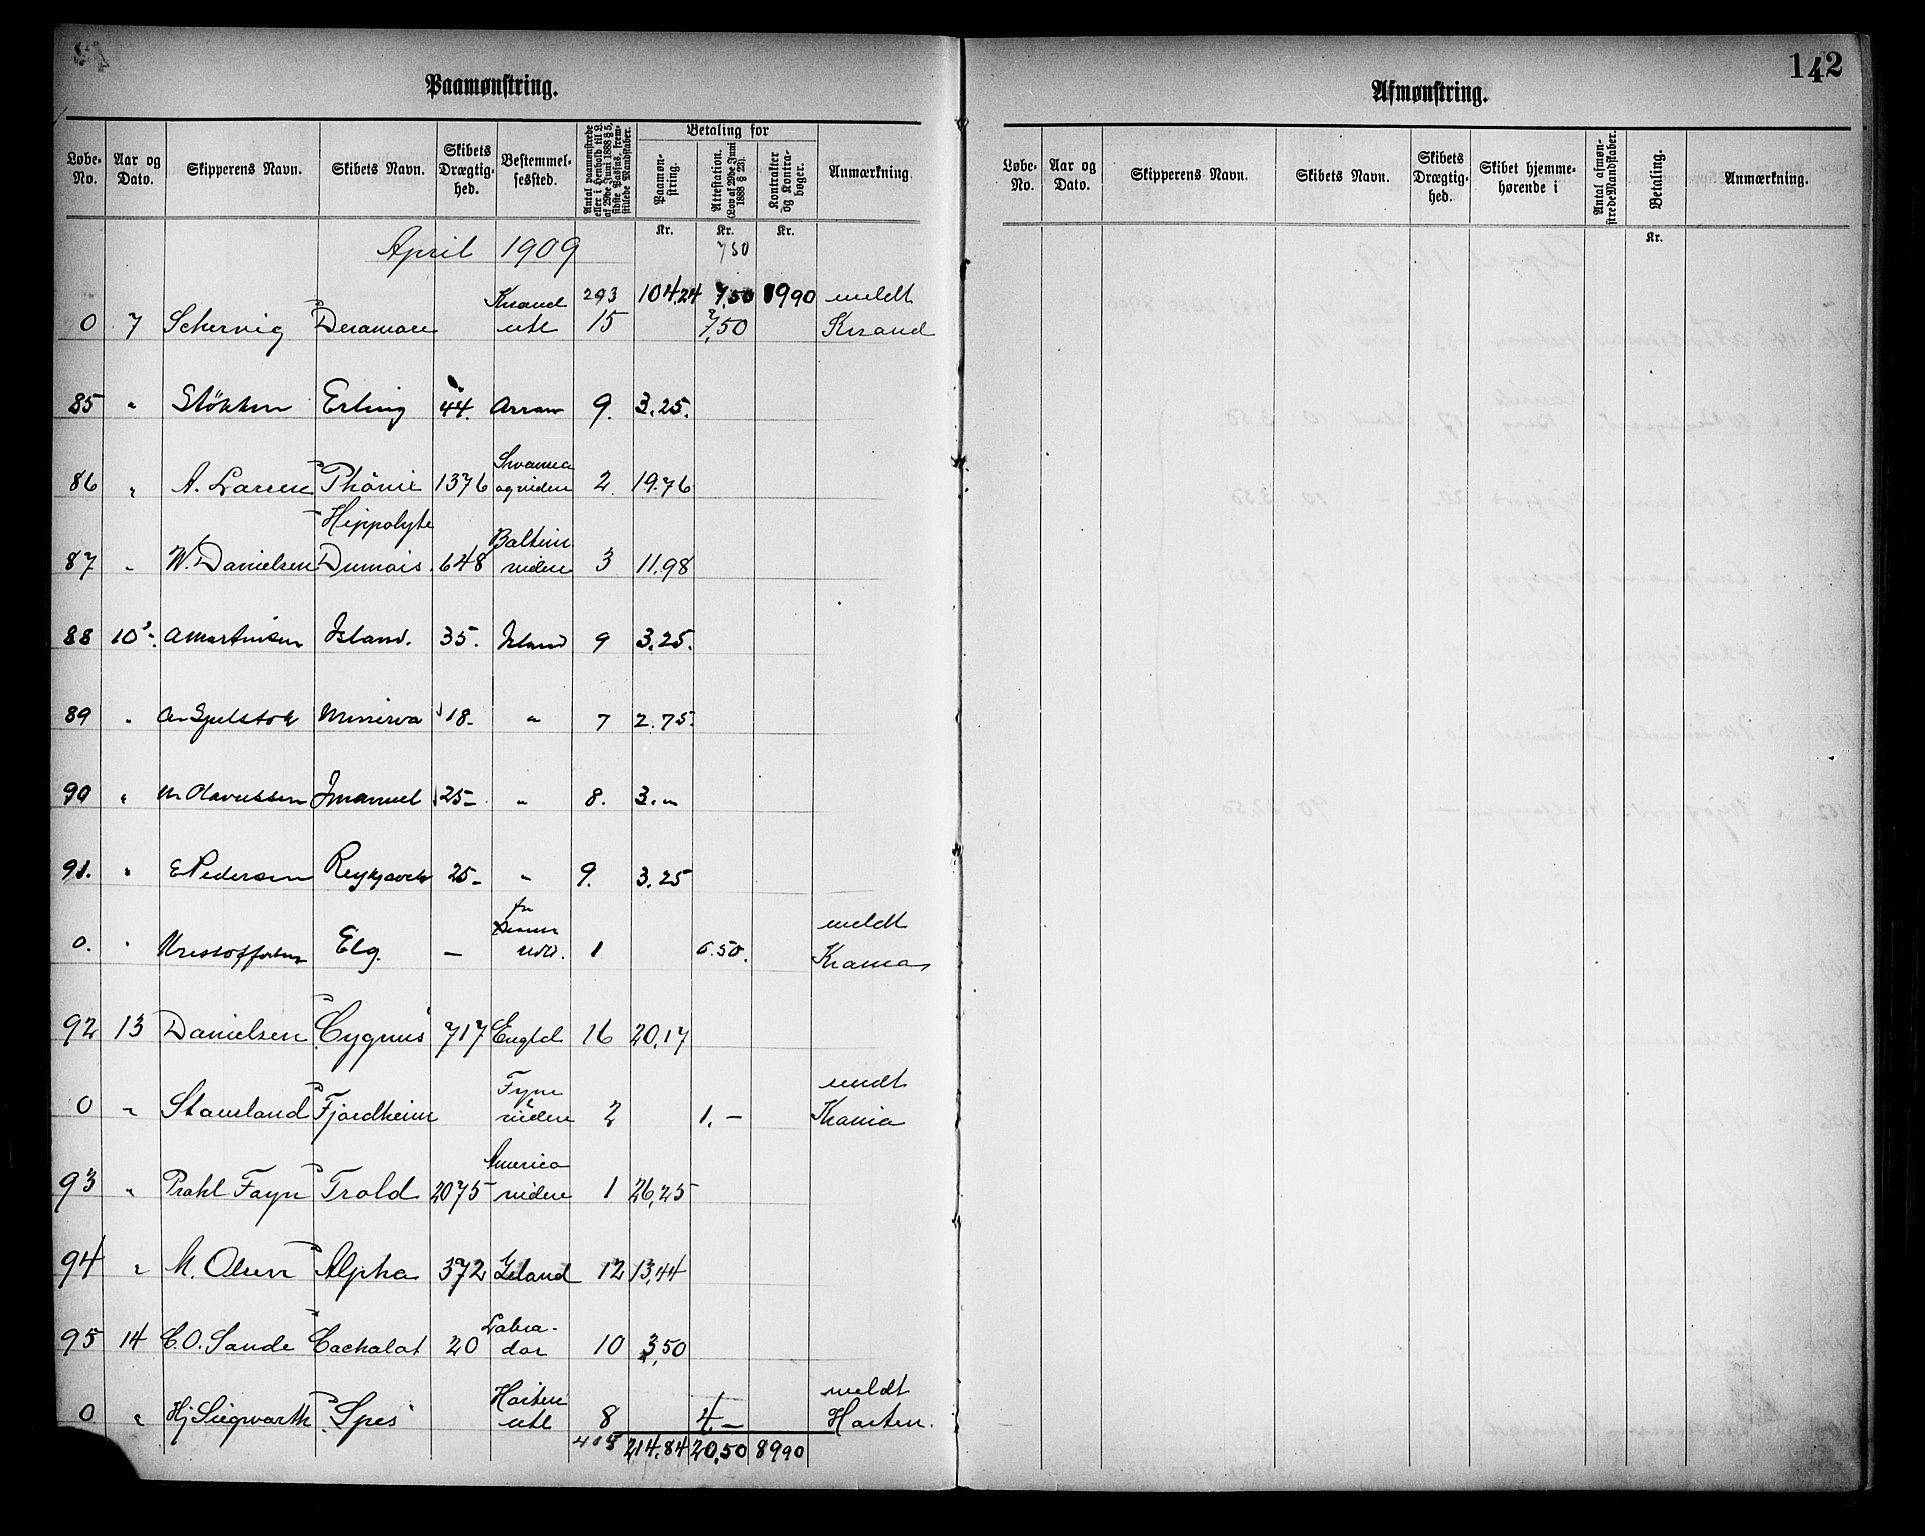 Paamønstring.
Løbe-No. Aar og Dato. Skipperens Navn. Skibets Navn. Skibets Drægtighed. Bestemmelsessted. Antal paamønstrede eller i Henhold til L. af 29de Juni 1888 § 5, sidste Passus, fremstillede Mandskaber. Betaling for Paamønstring. Attestation. (Lov af 29de Juni 1888 § 23). Kontrakter og Kontrabøger. Anmærkning.
Kr. Kr. Kr.
April 1909 7 50
293 104,24 7,50 8990 meldt
0 7 Schervig "Deramore utl 15 7,50 Krsand
85 " Støkken Erling 44. Arran 9. 3.25.
86 " A. Larsen "Phönix 1376 Swansea og videre 2. 19.76
"Hippolyte
87 " W. Danielsen Dumois. 648 videre 3 11.98
88 10 A Martinsen Island. 35. Island 9 3.25.
89 " Minerva 18- " 7 2.75.
90 " M Olavussen Imanuel 25- " 8. 3."
91. " E Pedersen Reykjavik 25- " 9. 3.25
0. " Kristoffersen Elg. — 1 6.50. meldt Krania
92 13 Danielsen "Cygnus" 717 Engld 16 20,17
0 " Stausland "Fjordheim videre 2 1.- meldt Krania
93 " Prahl Fayn "Trold 2075 America videre 1 26,25
94 " M. Olsen "Alpha 372 Island 12 13,44
95 14 C.O. Sande "Cachalot 20 Labrador 10 3,50
0 " Hj Siegwarth "Spes" Horten utl 8 4.- meldt Horten.
408 214.84 20,50 8990
Afmønstring.
142
Løbe-No. Aar og Dato. Skipperens Navn. Skibets Navn. Skibets Drægtighed. Skibet hjemmehørende i Antal afmønstrede Mandskaber. Betaling. Anmærkning.
Kr.